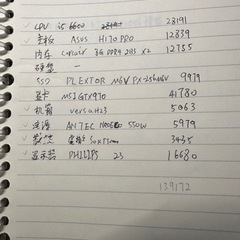 CPU i5 6600 28191
主板 ASUS H170 PRO 12839
内存 Corsair 8G DDR4 2133 x2 12735
硬盘 —
SSD PLEXTOR M6V PX-256M6V 9979
显卡 MSI GTX970 41780
机箱 versa H23 5063
电源 ANTEC NEOECO 550W 5979
散热 3435
显示器 PHILIPS 23 16680
139172